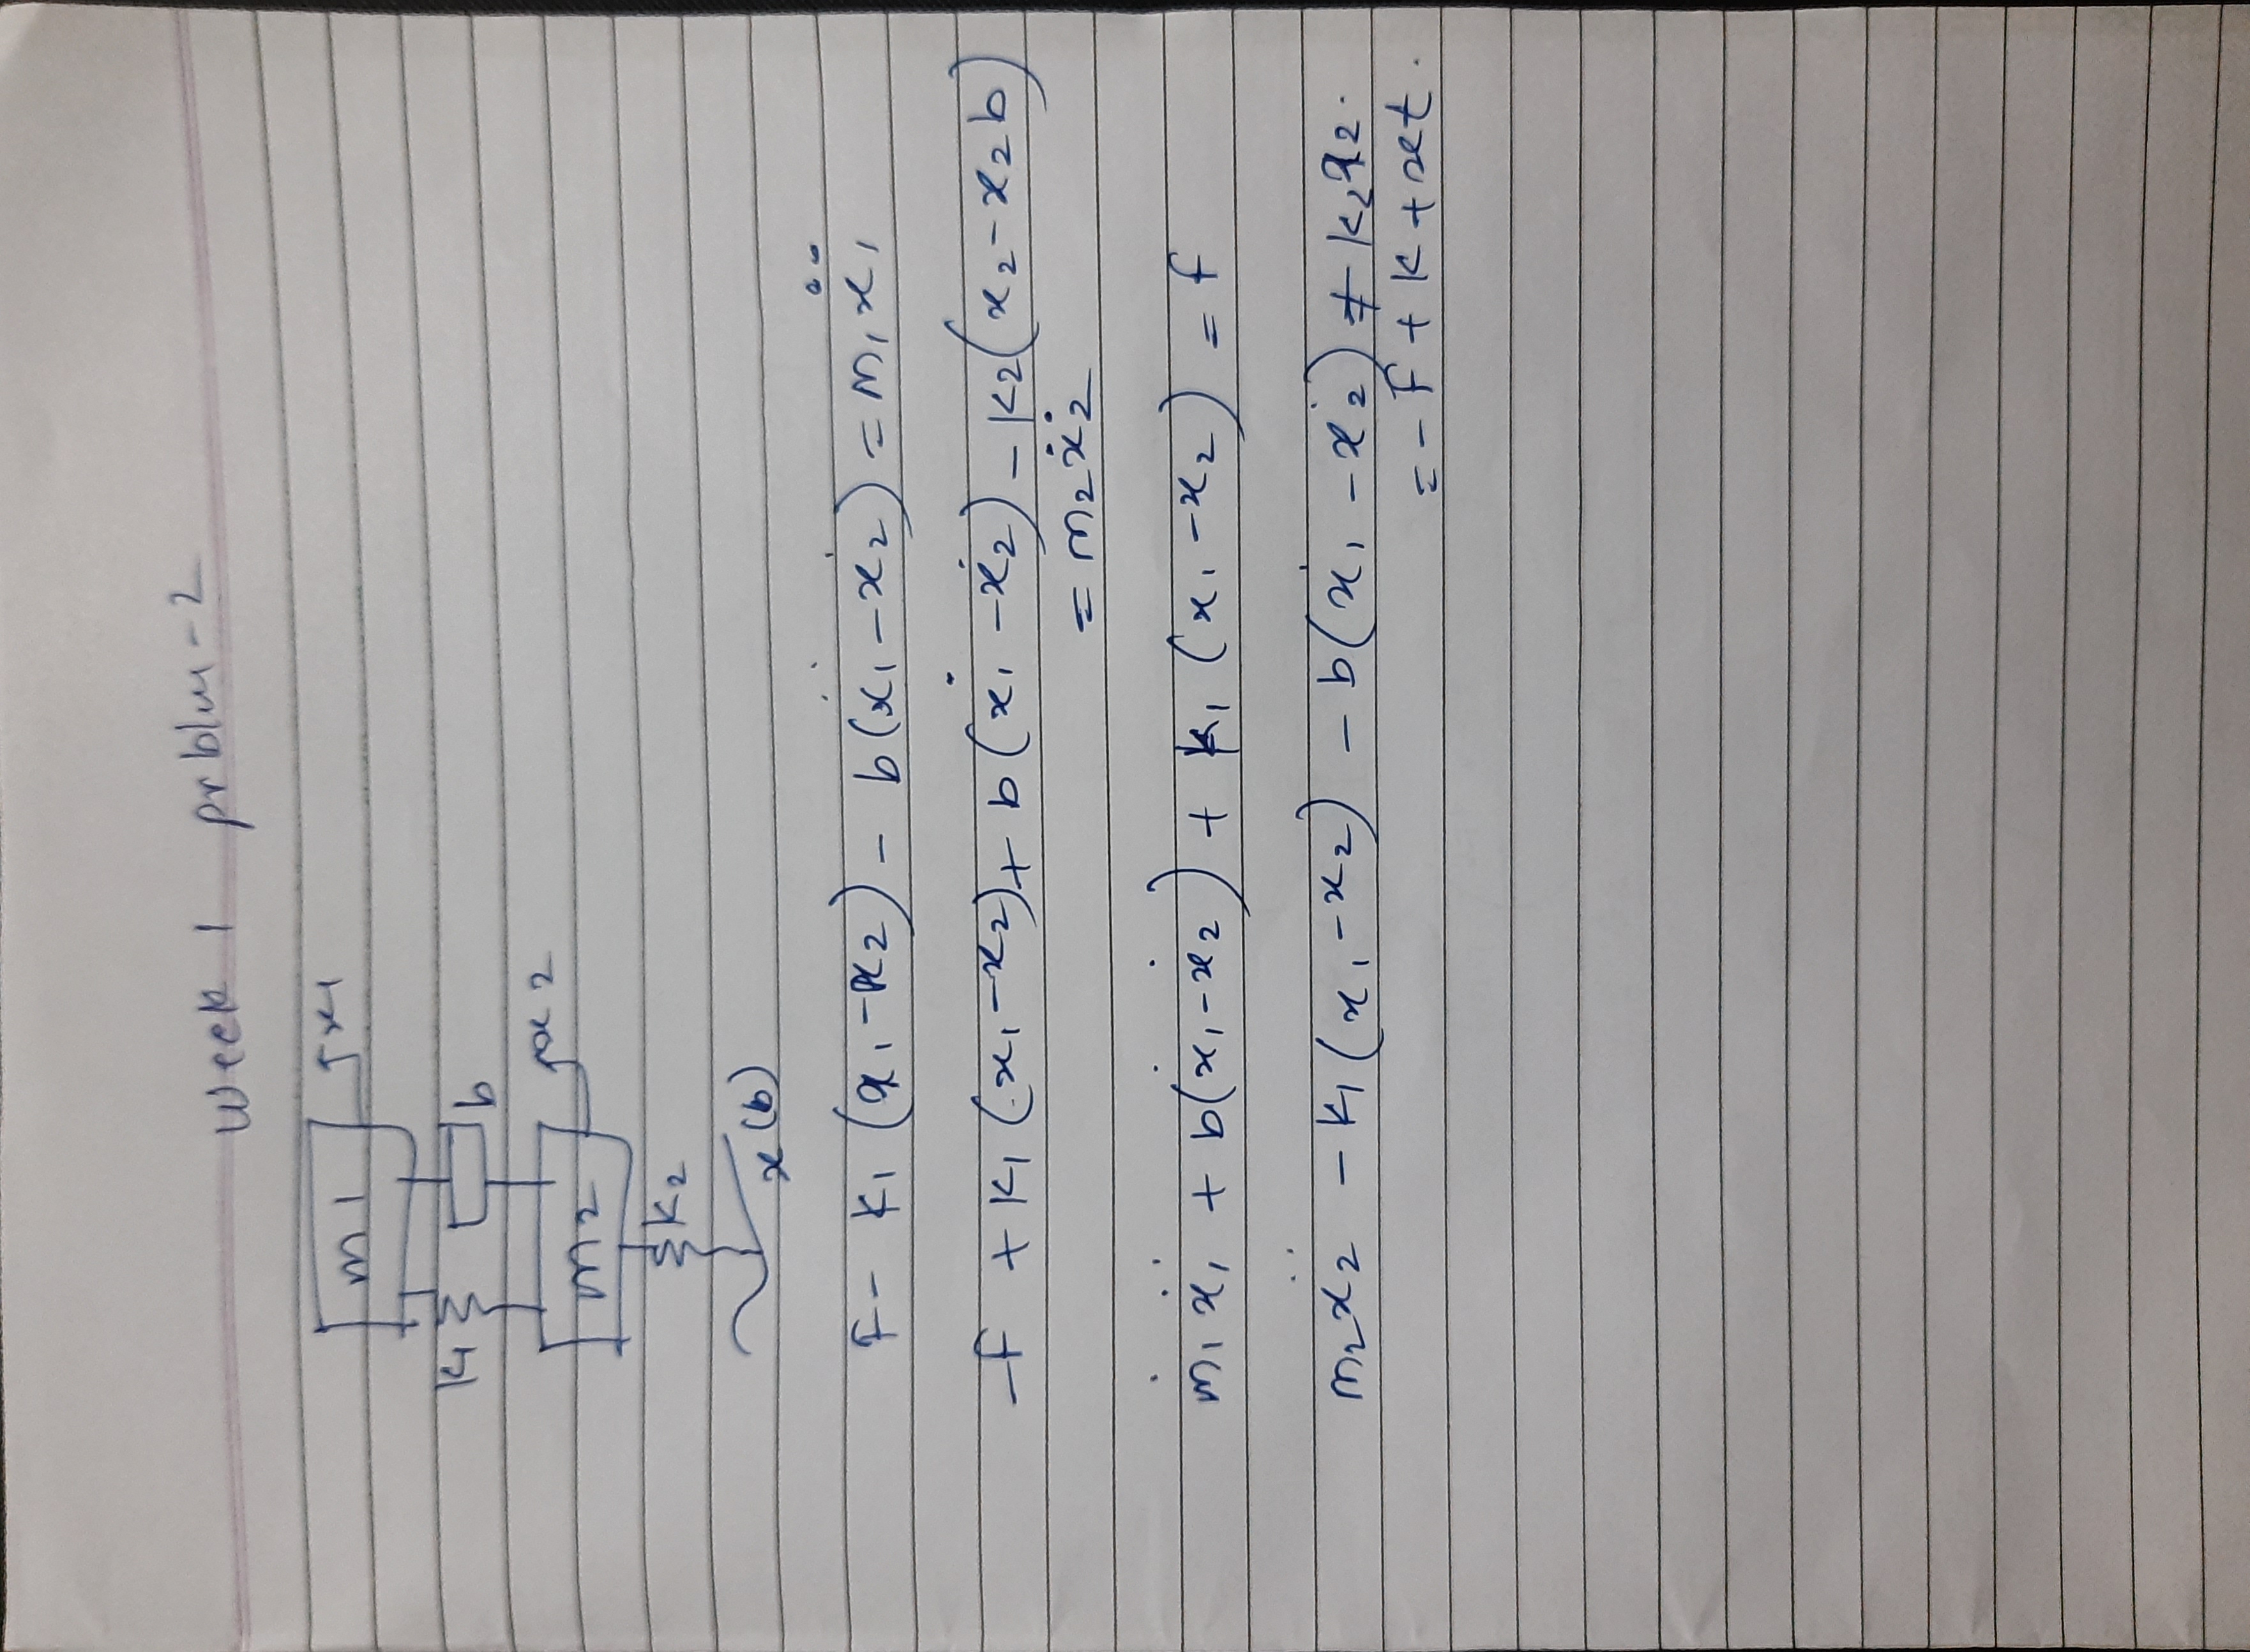 week 1 prblm-2
m1
x1
k1
b
m2
x2
k2
x(b)
F - k₁ (x₁ - x₂) - b(ẋ₁ - ẋ₂) = m₁ẍ₁
-f + k₁ (x₁ - x₂) + b(ẋ₁ - ẋ₂) - k₂(x₂ - x₂b)
= m₂ẍ₂
m₁ẍ₁ + b(ẋ₁ - ẋ₂) + k₁ (x₁ - x₂) = f
m₂ẍ₂ - k₁(x₁ - x₂) - b(ẋ₁ - ẋ₂) + k₂x₂.
= -f + k + xt.